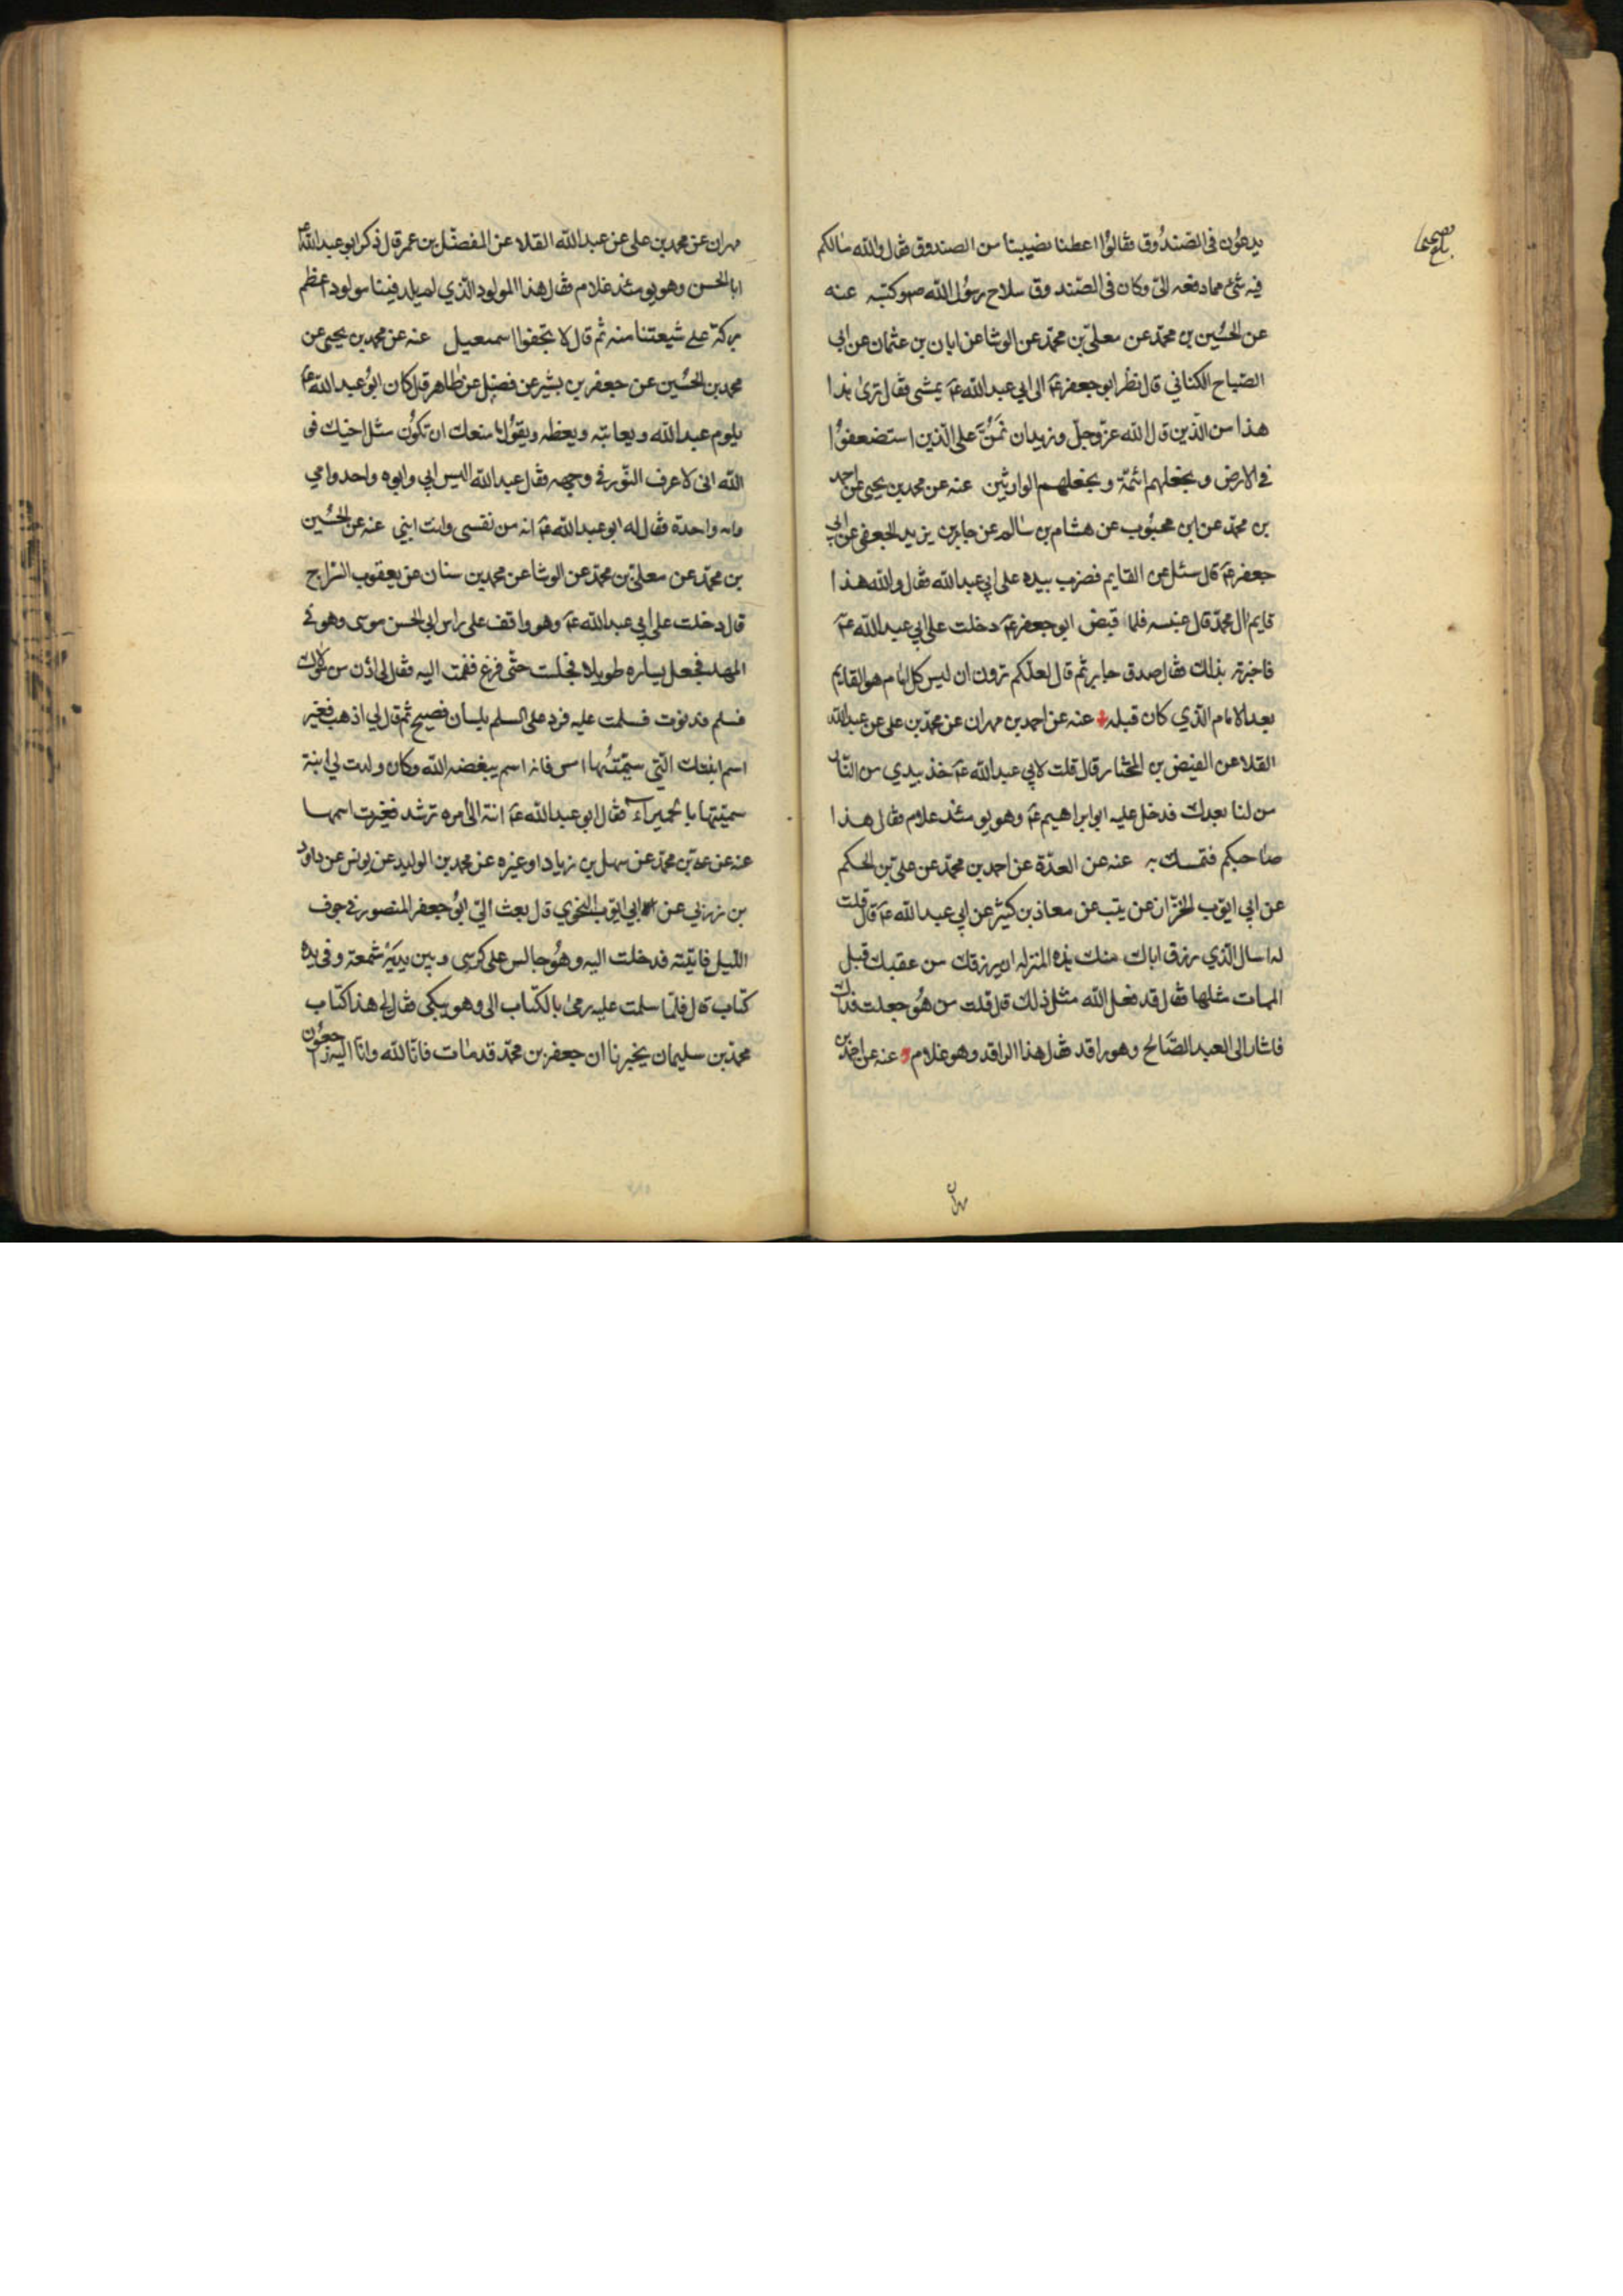 يدعون في الصندوق فقالوا اعطنا نصيبنا من الصندوق فقال والله مالكم
فيه شئ مما دفعه الي وكان في الصندوق سلاح رسول الله ص وكتبه عنه
عن الحسين بن محمد عن معلى بن محمد عن الوشا عن ابان بن عثمان عن ابي
الصباح الكناني قال نظر ابو جعفر ع الى ابي عبد الله ع يمشي فقال ترى هذا
هذا من الذين قال الله عز وجل ونريد ان نمن على الذين استضعفوا
في الارض ونجعلهم ائمة ونجعلهم الوارثين عنه عن محمد بن يحيى عن احمد
بن محمد عن ابن محبوب عن هشام بن سالم عن جابر بن يزيد الجعفي عن ابي
جعفر ع قال سئل عن القايم فضرب بيده على ابي عبد الله فقال والله هذا
قايم ال محمد قال عنبسه فلما قبض ابو جعفر ع دخلت على ابي عبد الله ع
فاخبرته بذلك فقال صدق جابر ثم قال لعلكم ترون ان ليس كل امام هو القايم
بعد الامام الذي كان قبله عنه عن احمد بن مهران عن محمد بن علي عن عبد الله
القلا عن الفيض بن المختار قال قلت لابي عبد الله ع خذ بيدي من النار
من لنا بعدك فدخل عليه ابو ابراهيم ع وهو يومئذ غلام فقال هذا
صاحبكم فتمسك به عنه عن العدة عن احمد بن محمد عن علي بن الحكم
عن ابي ايوب الخزاز عن ثبيت عن معاذ بن كثير عن ابي عبد الله ع قال قلت
له اسال الذي رزق اباك منك هذه المنزله ان يرزقك من عقبك قبل
الممات مثلها فقال قد فعل الله مثل ذلك قال قلت من هو جعلت فداك
فاشار الى العبد الصالح وهو راقد فقال هذا الراقد وهو غلام عنه عن احمد بن
مهران
مهران عن محمد بن علي عن عبد الله القلا عن المفضل بن عمر قال ذكر ابو عبد الله ع
ابا الحسن وهو يومئذ غلام فقال هذا المولود الذي لم يلد فينا مولود اعظم
بركة على شيعتنا منه ثم قال لا تجفوا اسمعيل عنه عن محمد بن يحيى عن
محمد بن الحسين عن جعفر بن بشير عن فضيل عن طاهر قال كان ابو عبد الله ع
يلوم عبد الله ويعاتبه ويعظه ويقول ما منعك ان تكون مثل اخيك فو
الله اني لاعرف النور في وجهه فقال عبد الله اليس ابي وابوه واحد وامي
وامه واحدة فقال له ابو عبد الله ع انه من نفسي وانت ابني عنه عن الحسين
بن محمد عن معلى بن محمد عن الوشا عن محمد بن سنان عن يعقوب السراج
قال دخلت على ابي عبد الله ع وهو واقف على راس ابي الحسن موسى وهو في
المهد فجعل يساره طويلا فجلست حتى فرغ فقمت اليه فقال لي ادن من مولاك
فسلم فدنوت فسلمت عليه فرد على السلم بلسان فصيح ثم قال لي اذهب فغير
اسم ابنتك التي سميتها امس فانه اسم يبغضه الله وكان ولدت لي ابنة
سميتها بالحميراء فقال ابو عبد الله ع انته الى امره ترشد فغيرت اسمها
عنه عن علي بن محمد عن سهل بن زياد او غيره عن محمد بن الوليد عن يونس عن داود
بن زربي عن ابي ايوب النحوي قال بعث الي ابو جعفر المنصور في جوف
الليل فاتيته فدخلت اليه وهو جالس على كرسي وبين يديه شمعة وفي يده
كتاب قال فلما سلمت عليه رمى بالكتاب الي وهو يبكي فقال لي هذا كتاب
محمد بن سليمان يخبرنا ان جعفر بن محمد قد مات فانا لله وانا اليه راجعون